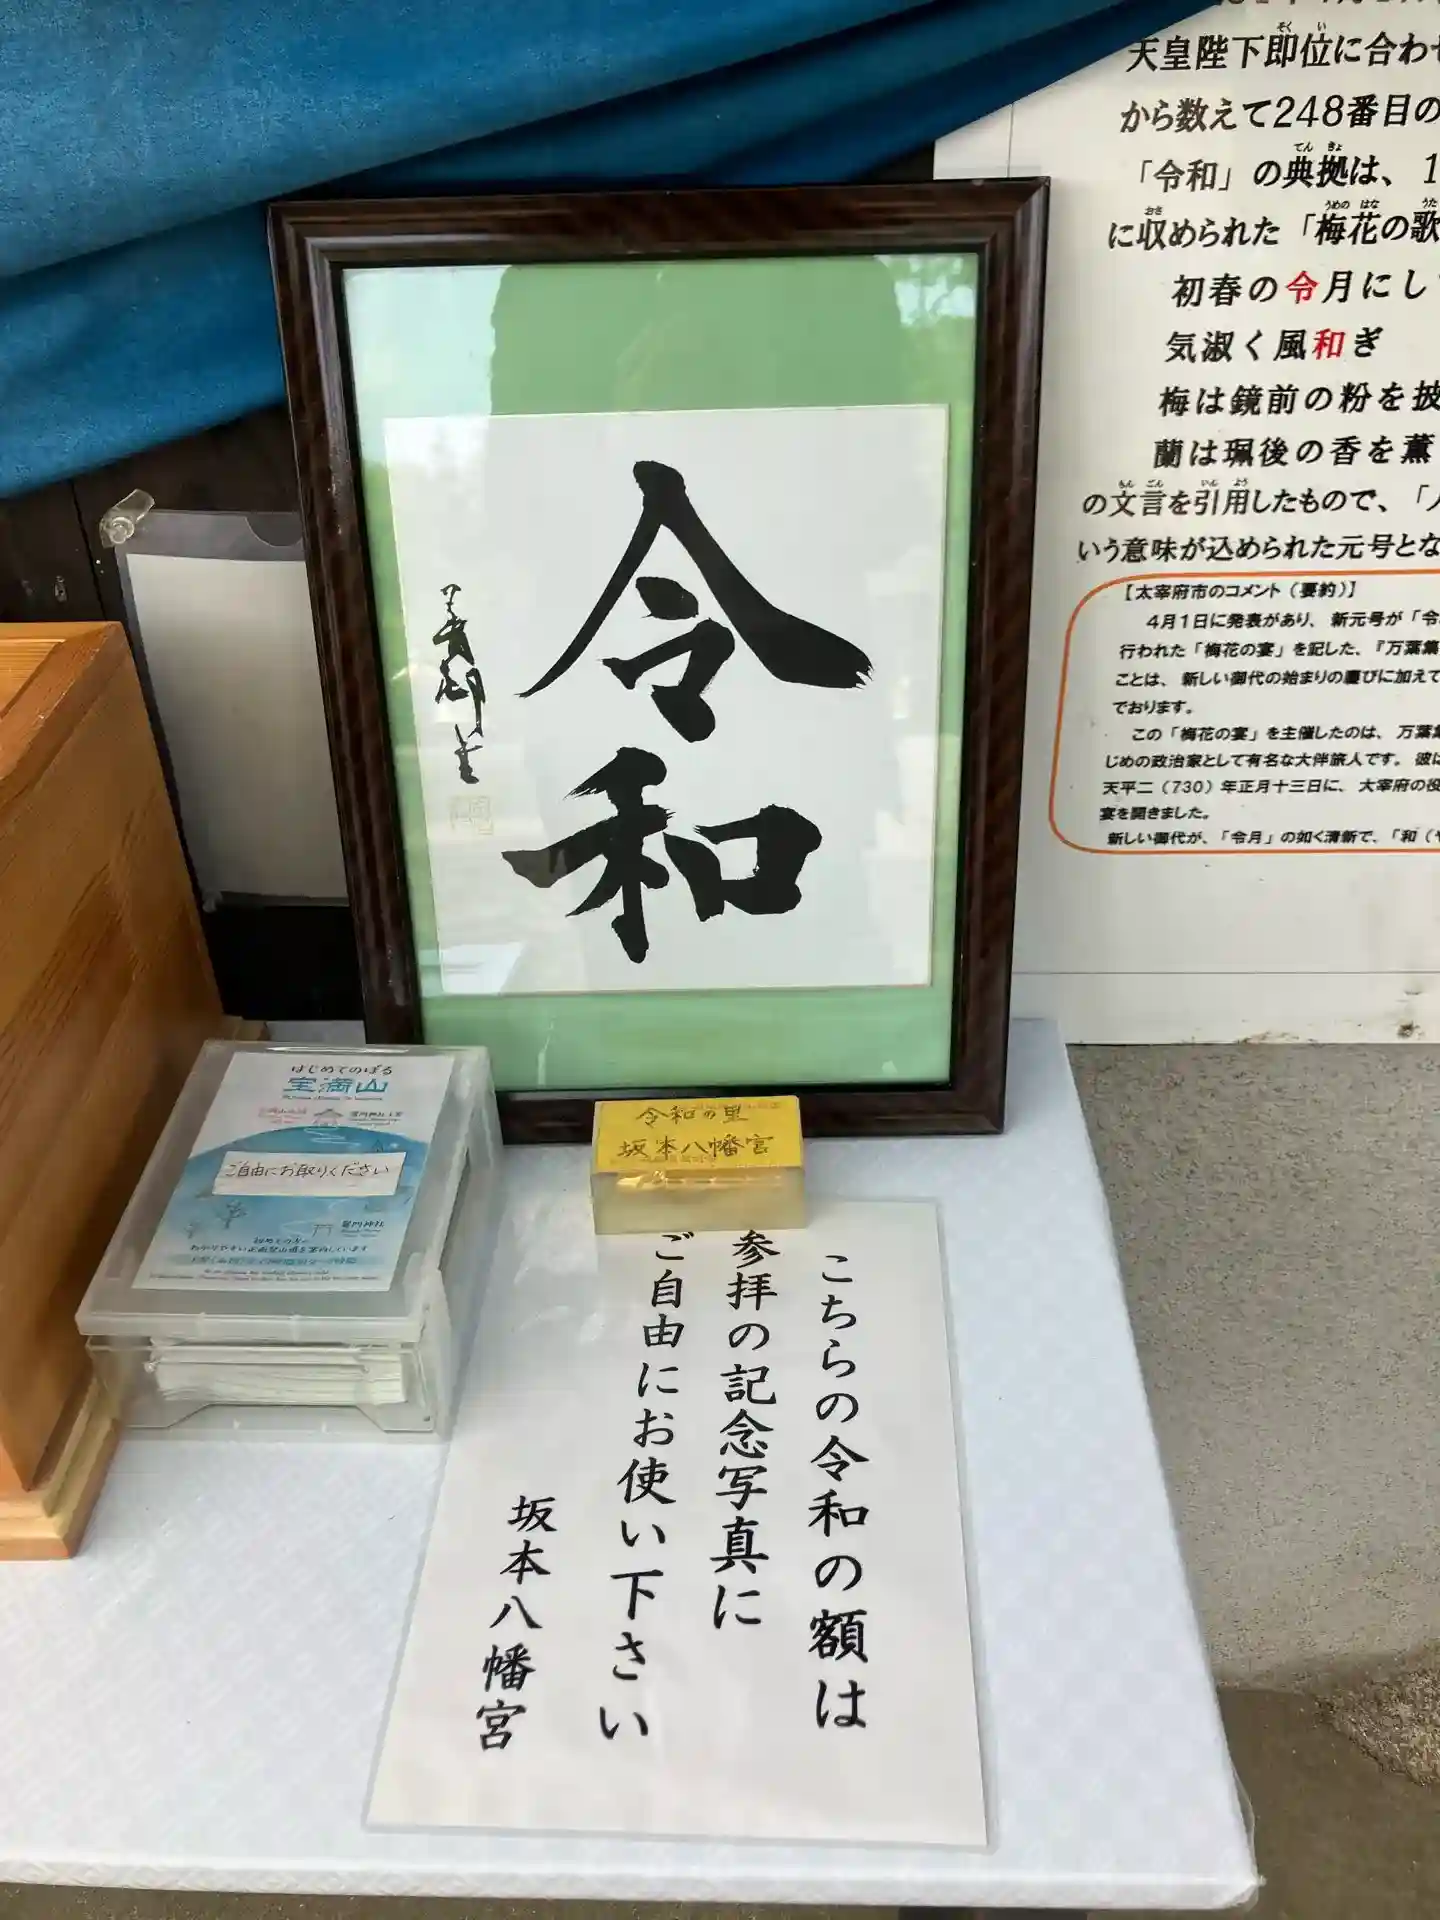 天皇陛下即位に合わせ
から数えて248番目の
「令和」の典拠は、1
に収められた「梅花の歌
初春の令月にし
気淑く風和ぎ
梅は鏡前の粉を披
蘭は珮後の香を薫
の文言を引用したもので、「人
いう意味が込められた元号とな
【太宰府市のコメント（要約）】
4月1日に発表があり、新元号が「令
行われた「梅花の宴」を記した、『万葉集
ことは、新しい御代の始まりの慶びに加えて
でおります。
この「梅花の宴」を主催したのは、万葉集
じめの政治家として有名な大伴旅人です。彼は
天平二（730）年正月十三日に、大宰府の役
宴を開きました。
新しい御代が、「令月」の如く清新で、「和（や
令和
はじめてのぼる
宝満山
ご自由にお取りください
竈門神社
令和の里
坂本八幡宮
こちらの令和の額は
参拝の記念写真に
ご自由にお使い下さい
坂本八幡宮